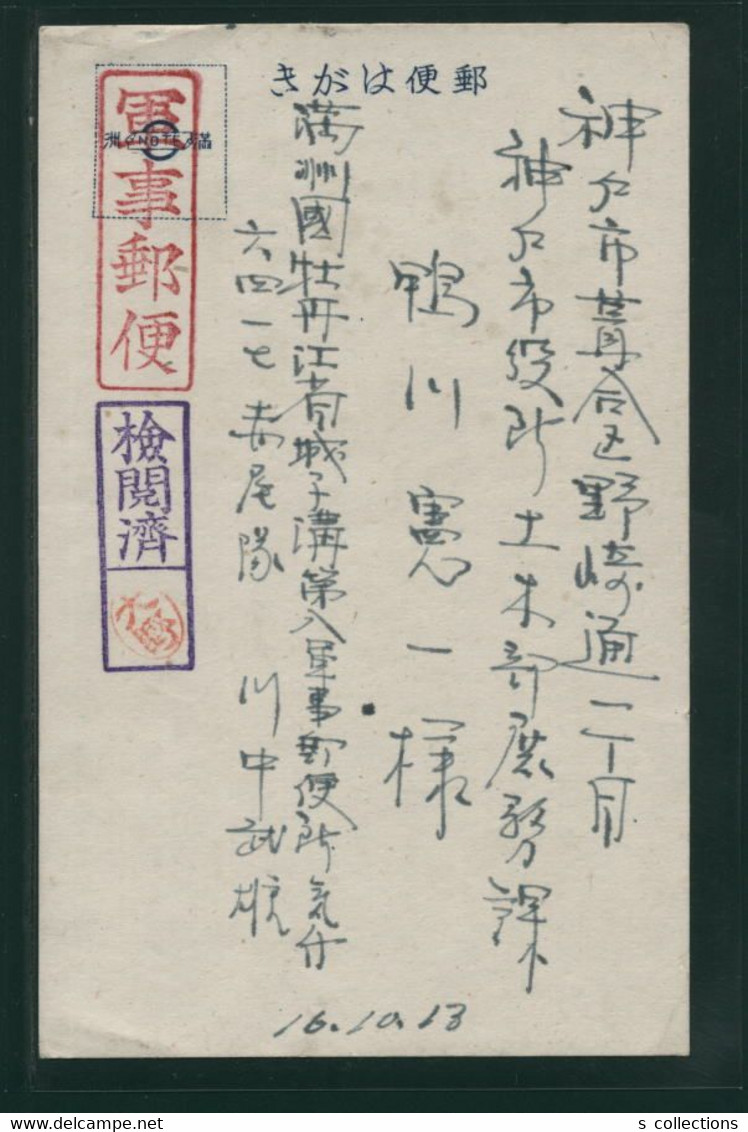 郵便はがき
神戸市葺合区野崎通一丁目
神戸市役所土木部庶務課
鴨川憲一様
満洲國牡丹江省城子溝第八軍事郵便所気付
六四一七赤尾隊 川中武雄
16.10.13
軍事郵便
検閲濟
s collections